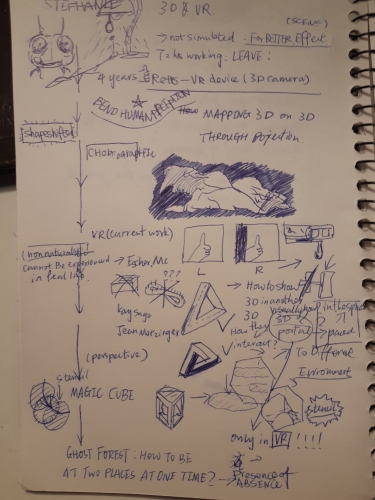 STEPHANIE
3D & VR
(SCENIC)
→ not simulated : For BETTER Effect
T2hs working : LEAVE :
4 years → VR device (3D camera)
BEND HUMAN PERCEPTION
MAPPING 3D on 3D
THROUGH Projection
shapeshifted
CHOREOGRAPHIE
VR (current work)
L R
cannot Be experienced
in real life
→ Escher, MC
???
kay sage
Jean Metzinger
→ How to show
3D in another
3D
usually how
3D
portal
in the space
How they
interact?
To Different
Enviroment
(perspective)
stencil
MAGIC CUBE
stencil
only in VR !!!!
GHOST FOREST : HOW TO BE
AT TWO PLACES AT ONE TIME? →
Presence of
ABSENCE